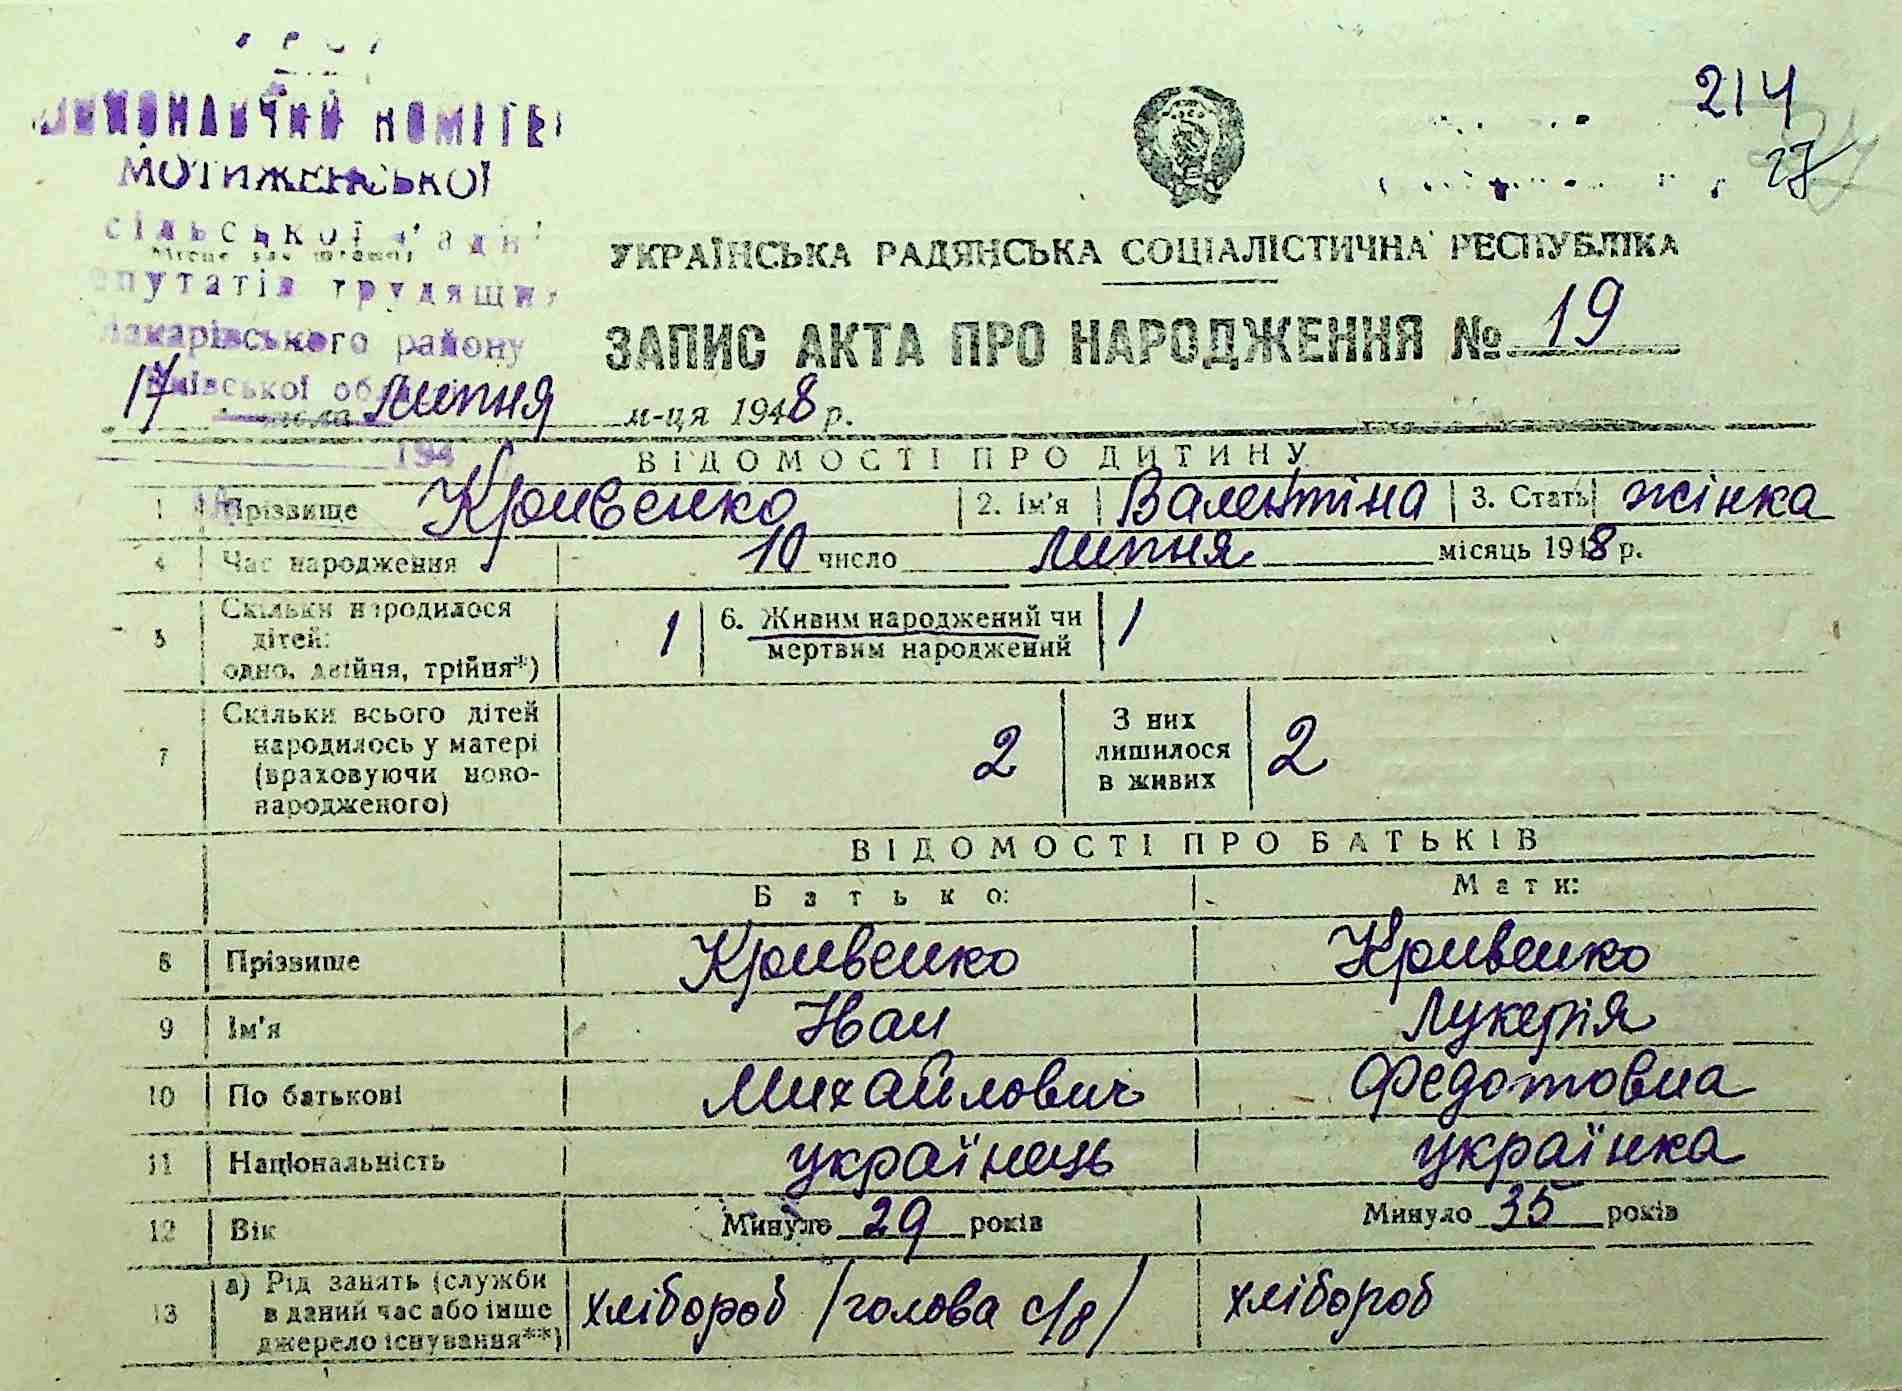 ВИКОНАВЧИЙ КОМІТЕТ
МОТИЖЕНСЬКОЇ
сільської Ради
депутатів трудящих
Макарівського району
Київської обл.
194
214
27
УКРАЇНСЬКА РАДЯНСЬКА СОЦІАЛІСТИЧНА РЕСПУБЛІКА
ЗАПИС АКТА ПРО НАРОДЖЕННЯ № 19
17 числа липня м-ця 1948 р.
ВІДОМОСТІ ПРО ДИТИНУ
1 Прізвище Кривенко 2. Ім'я Валентіна 3. Стать жінка
4 Час народження 10 число липня місяць 1948 р.
5 Скільки народилося
дітей:
одно, двійня, трійня*) 1 6. Живим народжений чи
мертвим народжений 1
7 Скільки всього дітей
народилось у матері
(враховуючи ново-
народженого) 2 З них
лишилося
в живих 2
ВІДОМОСТІ ПРО БАТЬКІВ
Батько: Мати:
8 Прізвище Кривенко Кривенко
9 Ім'я Иван Лукерія
10 По батькові Михайлович Федотовна
11 Національність українець українка
12 Вік Минуло 29 років Минуло 35 років
13 а) Рід занять (служби
в даний час або інше
джерело існування**) хлібороб /голова с/р/ хлібороб